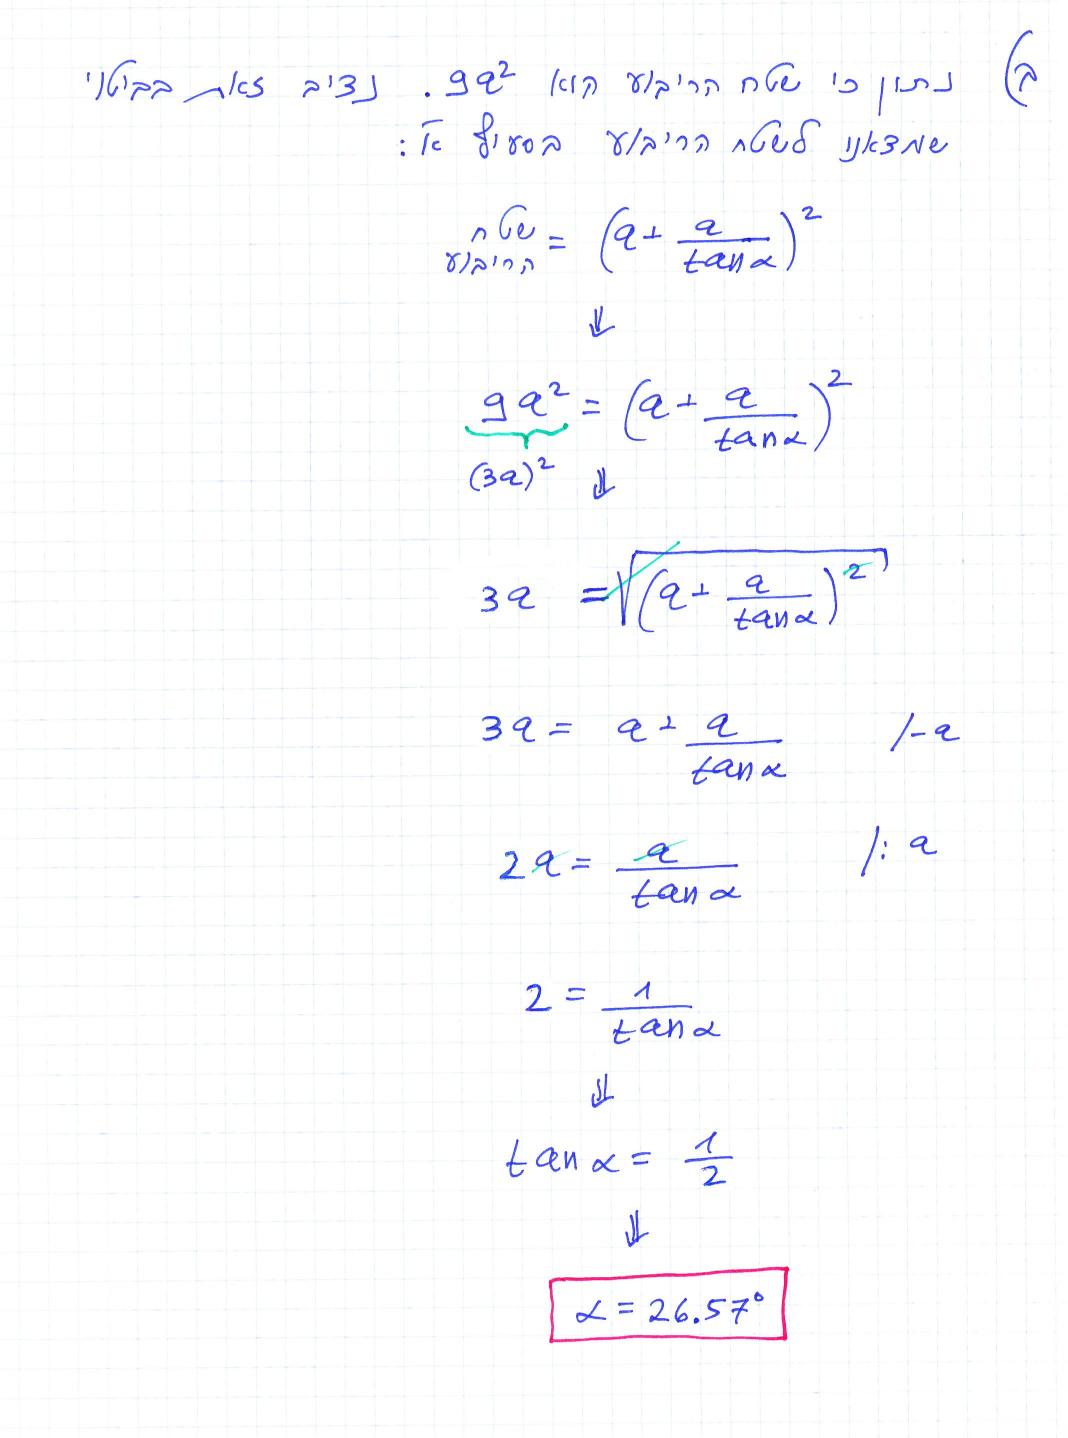 ב) נתון כי שטח הריבוע הוא 9a². נציב זאת בביטוי
שמצאנו לשטח הריבוע בסעיף א':
שטח הריבוע = (a + a/tanα)²
⇓
9a² = (a + a/tanα)²
(3a)² ⇓
3a = √(a + a/tanα)²
3a = a + a/tanα /-a
2a = a/tanα /: a
2 = 1/tanα
⇓
tanα = 1/2
⇓
α = 26.57°